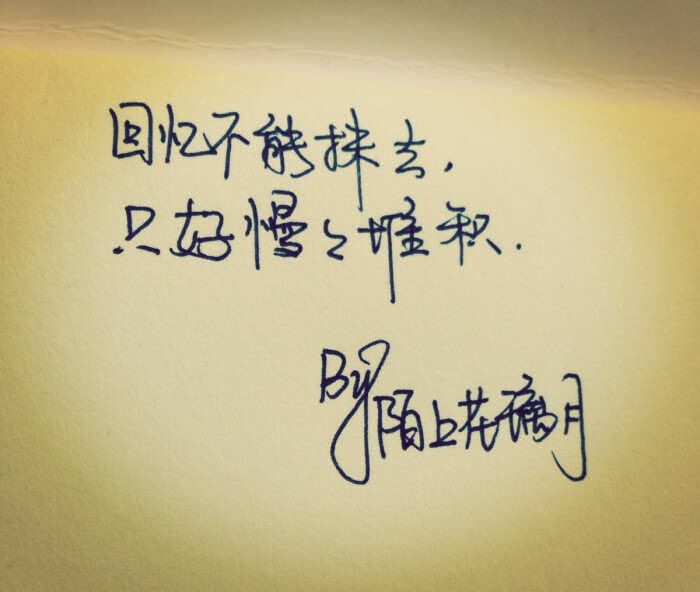 回忆不能抹去,
只好慢々堆积.
By陌上花漓月